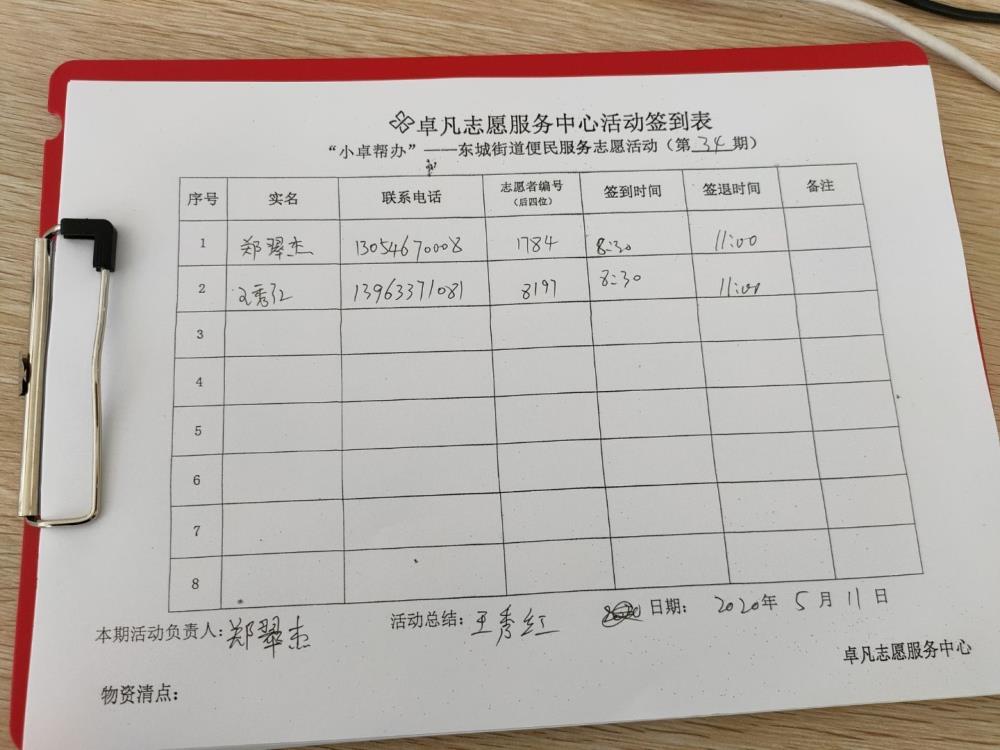 卓凡志愿服务中心活动签到表
“小卓帮办”——东城街道便民服务志愿活动（第34期）
序号 实名 联系电话 志愿者编号（后四位） 签到时间 签退时间 备注
1 郑翠杰 13054670008 1784 8:30 11:00
2 王秀红 13963371081 8197 8:30 11:00
3
4
5
6
7
8
本期活动负责人：郑翠杰 活动总结：王秀红 日期：2020年5月11日
卓凡志愿服务中心
物资清点：